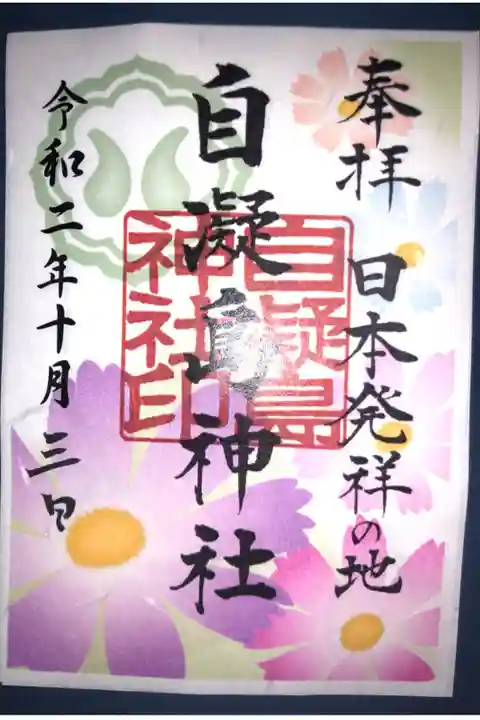 奉拝 日本発祥の地
自凝島神社
自凝島
神社印
令和二年十月三日